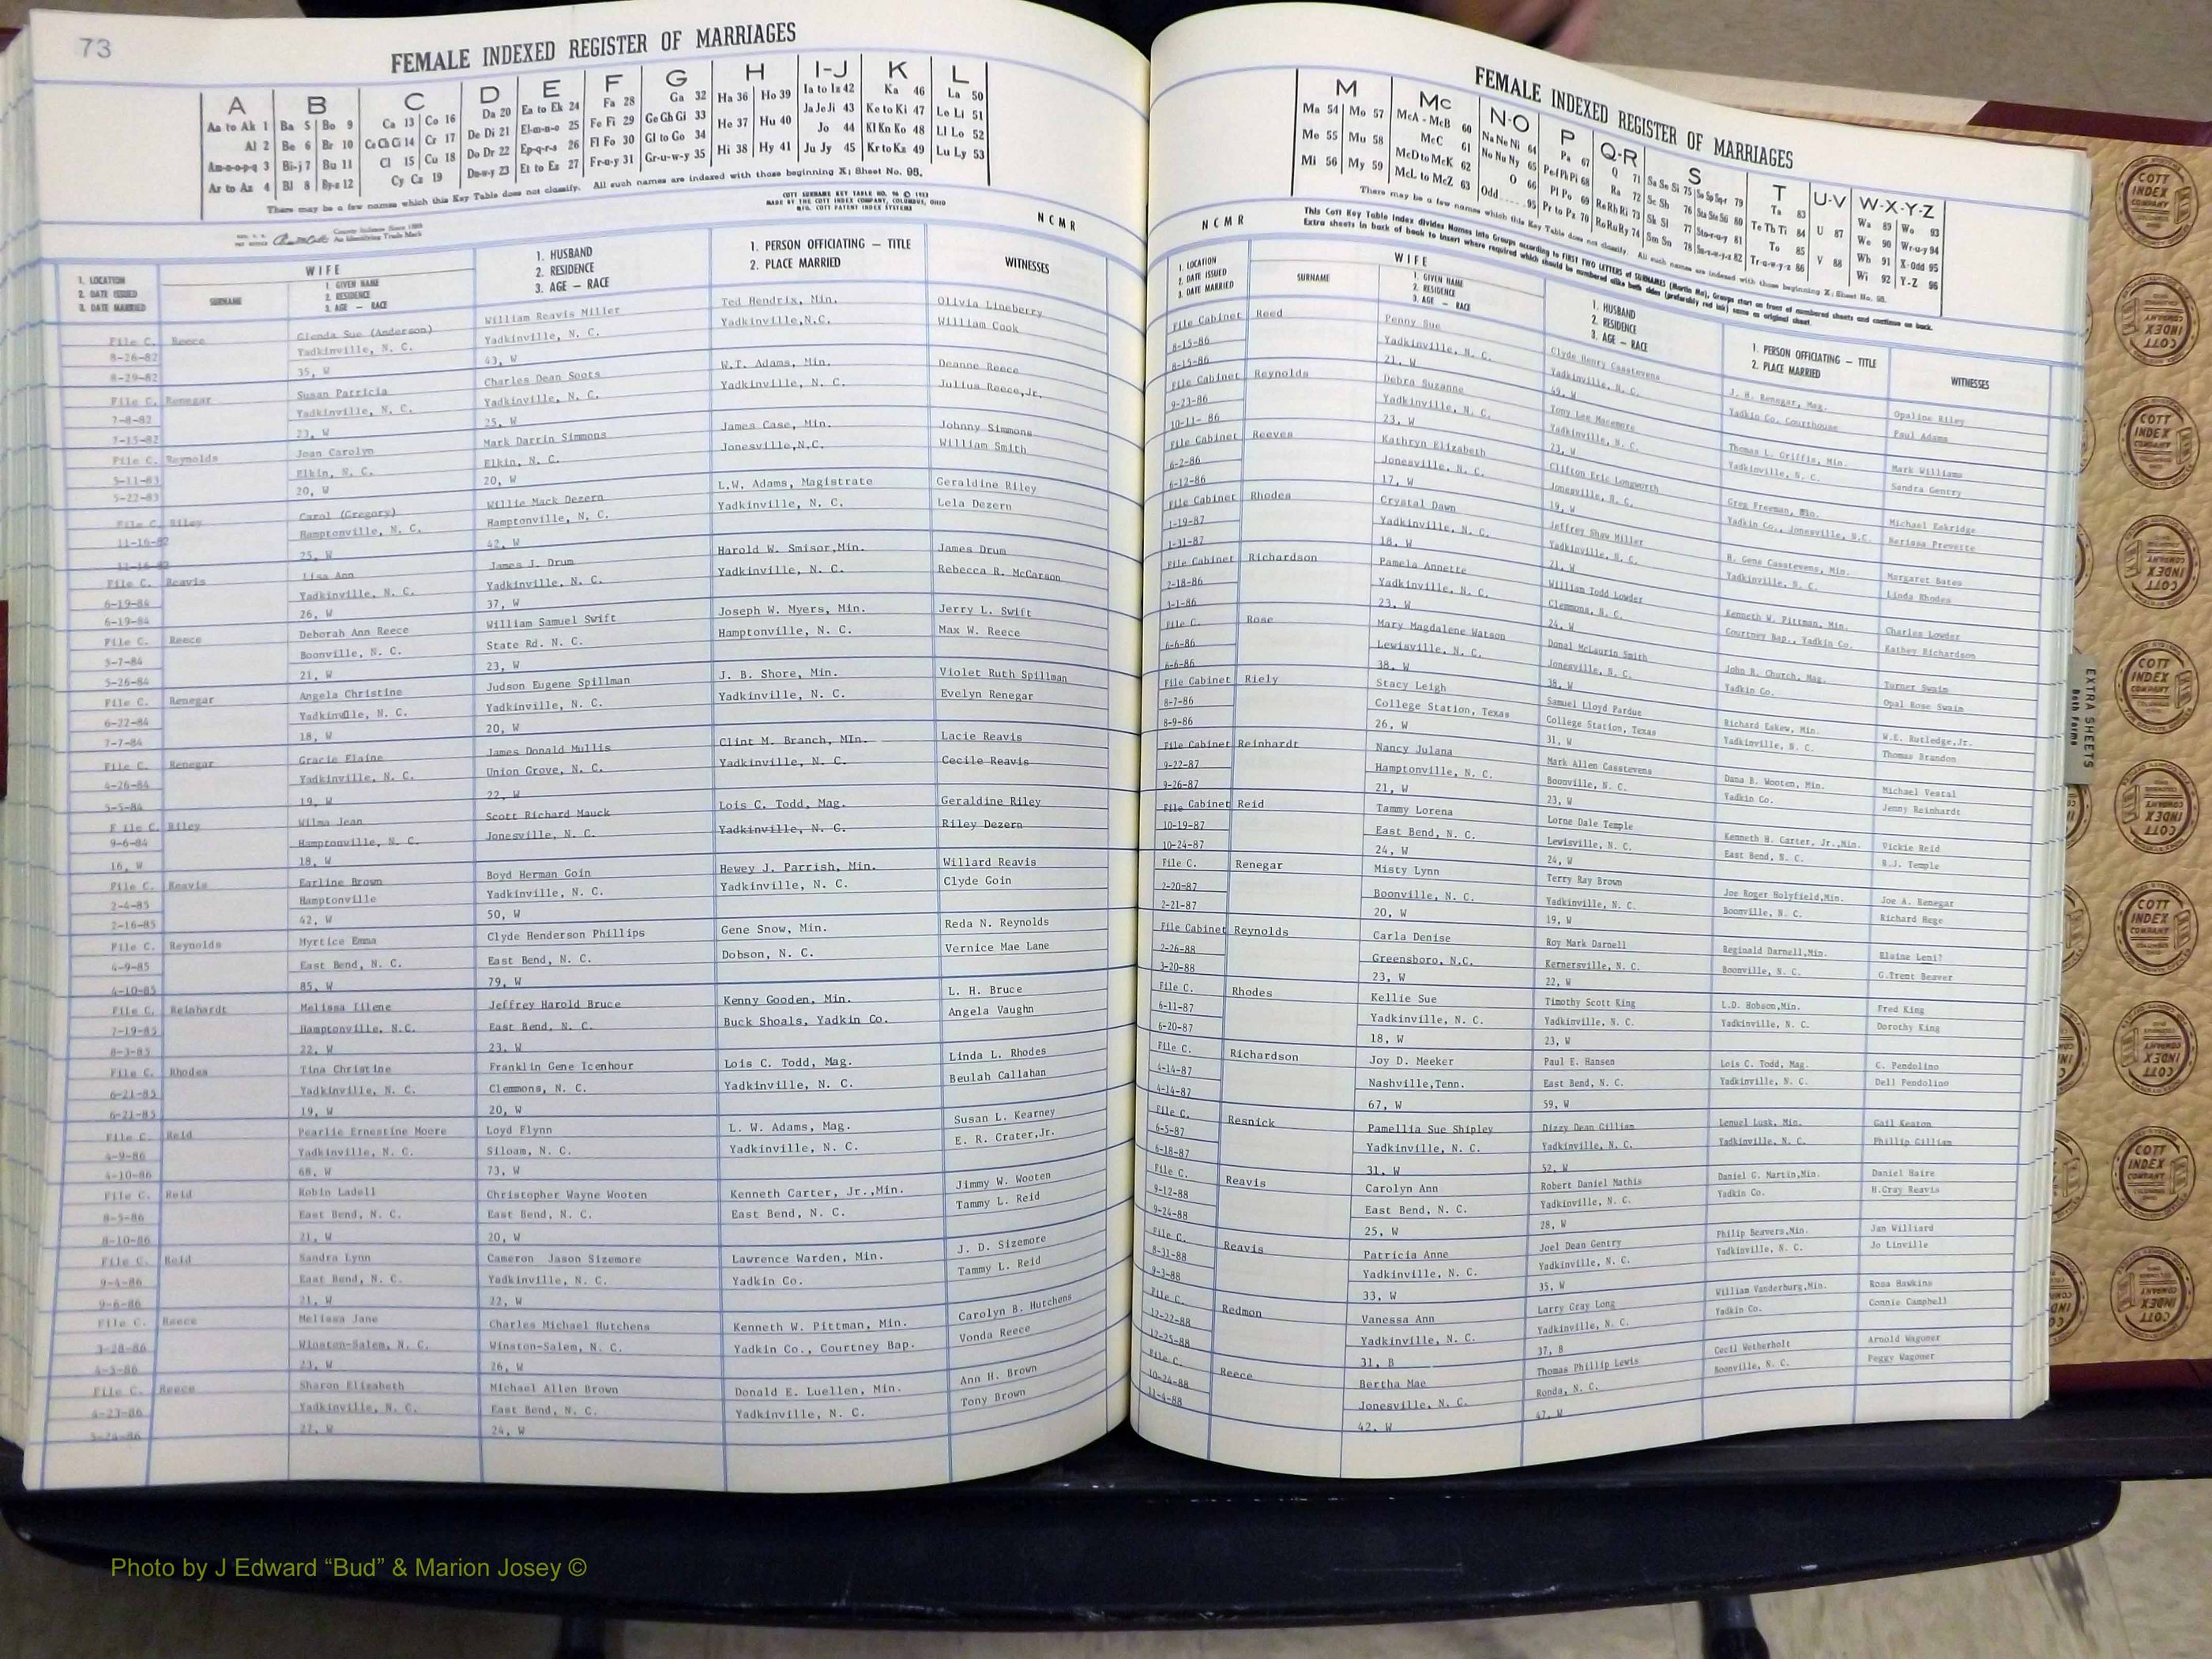 73
FEMALE INDEXED REGISTER OF MARRIAGES
A B C D E F G H I-J K L
Aa to Ak 1 Ba 5 Bo 9 Ca 13 Co 16 Da 20 Ea to Ek 24 Fa 28 Ga 32 Ha 36 Ho 39 Ia to Iz 42 Ka 46 La 50
Al 2 Be 6 Br 10 Ce Ch Ci 14 Cr 17 De Di 21 El-m-n-o 25 Fe Fi 29 Ge Gh Gi 33 He 37 Hu 40 Ja Je Ji 43 Ke to Ki 47 Le Li 51
Am-n-o-p-q 3 Bi-j 7 Bu 11 Cl 15 Cu 18 Do Dr 22 Ep-q-r-s 26 Fl Fo 30 Gl to Go 34 Hi 38 Hy 41 Jo 44 Kl Kn Ko 48 Ll Lo 52
Ar to Az 4 Bl 8 By-z 12 Cy Cz 19 Du-w-y 23 Et to Ez 27 Fr-u-y 31 Gr-u-w-y 35 Ju Jy 45 Kr to Kz 49 Lu Ly 53
There may be a few names which this Key Table does not classify. All such names are indexed with those beginning X; Sheet No. 95.
MADE BY THE COTT INDEX COMPANY, COLUMBUS, OHIO
N C M R
1. LOCATION
2. DATE ISSUED
3. DATE MARRIED
WIFE
SURNAME
1. GIVEN NAME
2. RESIDENCE
3. AGE — RACE
1. HUSBAND
2. RESIDENCE
3. AGE — RACE
1. PERSON OFFICIATING — TITLE
2. PLACE MARRIED
WITNESSES
File C. Reece Glenda Sue (Anderson) William Reavis Miller Ted Hendrix, Min. Olivia Lineberry
8-26-82 Yadkinville, N. C. Yadkinville, N. C. Yadkinville,N.C. William Cook
8-29-82 35, W 43, W
File C. Renegar Susan Patricia Charles Dean Soots W.T. Adams, Min. Deanne Reece
7-8-82 Yadkinville, N. C. Yadkinville, N. C. Yadkinville, N. C. Julius Reece,Jr.
7-15-82 23, W 25, W
File C. Reynolds Joan Carolyn Mark Darrin Simmons James Case, Min. Johnny Simmons
5-11-83 Elkin, N. C. Elkin, N. C. Jonesville,N.C. William Smith
5-22-83 20, W 20, W
File C. Riley Carol (Gregory) Willie Mack Dezern L.W. Adams, Magistrate Geraldine Riley
11-16-82 Hamptonville, N. C. Hamptonville, N. C. Yadkinville, N. C. Lela Dezern
11-16-82 25, W 42, W
File C. Reavis Lisa Ann James J. Drum Harold W. Smisor,Min. James Drum
6-19-84 Yadkinville, N. C. Yadkinville, N. C. Yadkinville, N. C. Rebecca R. McCarson
6-19-84 26, W 37, W
File C. Reece Deborah Ann Reece William Samuel Swift Joseph W. Myers, Min. Jerry L. Swift
5-7-84 Boonville, N. C. State Rd. N. C. Hamptonville, N. C. Max W. Reece
5-26-84 21, W 23, W
File C. Renegar Angela Christine Judson Eugene Spillman J. B. Shore, Min. Violet Ruth Spillman
6-22-84 Yadkinville, N. C. Yadkinville, N. C. Yadkinville, N. C. Evelyn Renegar
7-7-84 18, W 20, W
File C. Renegar Gracie Elaine James Donald Mullis Clint M. Branch, MIn. Lacie Reavis
4-26-84 Yadkinville, N. C. Union Grove, N. C. Yadkinville, N. C. Cecile Reavis
5-5-84 19, W 22, W
F ile C. Riley Wilma Jean Scott Richard Mauck Lois C. Todd, Mag. Geraldine Riley
9-6-84 Hamptonville, N. C. Jonesville, N. C. Yadkinville, N. C. Riley Dezern
16, W 18, W
File C. Reavis Earline Brown Boyd Herman Goin Hewey J. Parrish, Min. Willard Reavis
2-4-85 Hamptonville Yadkinville, N. C. Yadkinville, N. C. Clyde Goin
2-16-85 42, W 50, W
File C. Reynolds Myrtice Emma Clyde Henderson Phillips Gene Snow, Min. Reda N. Reynolds
4-9-85 East Bend, N. C. East Bend, N. C. Dobson, N. C. Vernice Mae Lane
4-10-85 85, W 79, W
File C. Reinhardt Melissa Ilene Jeffrey Harold Bruce Kenny Gooden, Min. L. H. Bruce
7-19-85 Hamptonville, N.C. East Bend, N. C. Buck Shoals, Yadkin Co. Angela Vaughn
8-3-85 22, W 23, W
File C. Rhodes Tina Christine Franklin Gene Icenhour Lois C. Todd, Mag. Linda L. Rhodes
6-21-85 Yadkinville, N. C. Clemmons, N. C. Yadkinville, N. C. Beulah Callahan
6-21-85 19, W 20, W
File C. Reid Pearlie Ernestine Moore Loyd Flynn L. W. Adams, Mag. Susan L. Kearney
4-9-86 Yadkinville, N. C. Siloam, N. C. Yadkinville, N. C. E. R. Crater,Jr.
4-10-86 68, W 73, W
File C. Reid Robin Ladell Christopher Wayne Wooten Kenneth Carter, Jr.,Min. Jimmy W. Wooten
8-5-86 East Bend, N. C. East Bend, N. C. East Bend, N. C. Tammy L. Reid
8-10-86 21, W 20, W
File C. Reid Sandra Lynn Cameron Jason Sizemore Lawrence Warden, Min. J. D. Sizemore
9-4-86 East Bend, N. C. Yadkinville, N. C. Yadkin Co. Tammy L. Reid
9-6-86 21, W 22, W
File C. Reece Melissa Jane Charles Michael Hutchens Kenneth W. Pittman, Min. Carolyn B. Hutchens
3-28-86 Winston-Salem, N. C. Winston-Salem, N. C. Yadkin Co., Courtney Bap. Vonda Reece
4-5-86 23, W 26, W
File C. Reece Sharon Elizabeth Michael Allen Brown Donald E. Luellen, Min. Ann H. Brown
4-23-86 Yadkinville, N. C. East Bend, N. C. Yadkinville, N. C. Tony Brown
5-24-86 22, W 24, W
FEMALE INDEXED REGISTER OF MARRIAGES
M Mc N-O P Q-R S T U-V W-X-Y-Z
Ma 54 Mo 57 McA - McB 60 Na Ne Ni 64 Pa 67 Q 71 Sa Se Si 75 Ta 83 U 87 Wa 89 Wo 93
Me 55 Mu 58 McC 61 No Nu Ny 65 Pe-f Ph Pi 68 Ra 72 Sc Sh 76 Sta Ste Sti 80 Te Th Ti 84 V 88 We 90 Wr-u-y 94
Mi 56 My 59 McD to McK 62 O 66 Pl Po 69 Re Rh Ri 73 Sk Sl 77 Sto-r-u-y 81 To 85 Wh 91 X-Odd 95
McL to McZ 63 Odd 95 Pr to Pz 70 Ro Ru Ry 74 Sm Sn 78 Tr-u-w-y-z 86 Wi 92 Y-Z 96
There may be a few names which this Key Table does not classify. All such names are indexed with those beginning X; Sheet No. 95.
This Cott Key Table Index divides Names into Groups according to FIRST TWO LETTERS of SURNAMES (Martin Ma), Groups start on front of numbered sheets and continue on back.
Extra sheets in back of book to insert where required which should be numbered alike both sides (preferably red ink) same as original sheet.
N C M R
1. LOCATION
2. DATE ISSUED
3. DATE MARRIED
WIFE
SURNAME
1. GIVEN NAME
2. RESIDENCE
3. AGE — RACE
1. HUSBAND
2. RESIDENCE
3. AGE — RACE
1. PERSON OFFICIATING — TITLE
2. PLACE MARRIED
WITNESSES
File Cabinet Reed Penny Sue Clyde Henry Casstevens J. H. Renegar, Mag. Opaline Riley
8-15-86 Yadkinville, N. C. Yadkinville, N. C. Yadkin Co. Courthouse Paul Adams
8-15-86 21, W 49, W
File Cabinet Reynolds Debra Suzanne Tony Lee Macemore Thomas L. Griffis, Min. Mark Williams
9-23-86 Yadkinville, N. C. Yadkinville, N. C. Yadkinville, N. C. Sandra Gentry
10-11- 86 23, W 23, W
File Cabinet Reeves Kathryn Elizabeth Clifton Eric Longworth Greg Freeman, Min. Michael Eskridge
6-2-86 Jonesville, N. C. Jonesville, N. C. Yadkin Co., Jonesville, N.C. Nerissa Prevette
6-12-86 17, W 19, W
File Cabinet Rhodes Crystal Dawn Jeffrey Shaw Miller H. Gene Casstevens, Min. Margaret Bates
1-19-87 Yadkinville, N. C. Yadkinville, N. C. Yadkinville, N. C. Linda Rhodes
1-31-87 18, W 21, W
File Cabinet Richardson Pamela Annette William Todd Lowder Kenneth W. Pittman, Min. Charles Lowder
2-18-86 Yadkinville, N. C. Clemmons, N. C. Courtney Bap., Yadkin Co. Kathey Richardson
1-1-86 23, W 24, W
File C. Rose Mary Magdalene Watson Donal McLaurin Smith John R. Church, Mag. Turner Swaim
6-6-86 Lewisville, N. C. Jonesville, N. C. Yadkin Co. Opal Rose Swaim
6-6-86 38, W 38, W
File Cabinet Riely Stacy Leigh Samuel Lloyd Pardue Richard Eskew, Min. W.E. Rutledge,Jr.
8-7-86 College Station, Texas College Station, Texas Yadkinville, N. C. Thomas Brandon
8-9-86 26, W 31, W
File Cabinet Reinhardt Nancy Julana Mark Allen Casstevens Dana B. Wooten, Min. Michael Vestal
9-22-87 Hamptonville, N. C. Boonville, N. C. Yadkin Co. Jenny Reinhardt
9-26-87 21, W 23, W
File Cabinet Reid Tammy Lorena Lorne Dale Temple Kenneth H. Carter, Jr.,Min. Vickie Reid
10-19-87 East Bend, N. C. Lewisville, N. C. East Bend, N. C. R.J. Temple
10-24-87 24, W 24, W
File C. Renegar Misty Lynn Terry Ray Brown Joe Roger Holyfield,Min. Joe A. Renegar
2-20-87 Boonville, N. C. Yadkinville, N. C. Boonville, N. C. Richard Hege
2-21-87 20, W 19, W
File Cabinet Reynolds Carla Denise Roy Mark Darnell Reginald Darnell,Min. Elaine Leni?
2-26-88 Greensboro, N.C. Kernersville, N. C. Boonville, N. C. G.Trent Beaver
3-20-88 23, W 22, W
File C. Rhodes Kellie Sue Timothy Scott King L.D. Hobson,Min. Fred King
6-11-87 Yadkinville, N. C. Yadkinville, N. C. Yadkinville, N. C. Dorothy King
6-20-87 18, W 23, W
File C. Richardson Joy D. Meeker Paul E. Hansen Lois C. Todd, Mag. C. Pendolino
4-14-87 Nashville,Tenn. East Bend, N. C. Yadkinville, N. C. Dell Pendolino
4-14-87 67, W 59, W
File C. Resnick Pamellia Sue Shipley Dizzy Dean Gilliam Lemuel Lusk, Min. Gail Keaton
6-5-87 Yadkinville, N. C. Yadkinville, N. C. Yadkinville, N. C. Phillip Gilliam
6-18-87 31, W 52, W
File C. Reavis Carolyn Ann Robert Daniel Mathis Daniel G. Martin,Min. Daniel Haire
9-12-88 East Bend, N. C. Yadkinville, N. C. Yadkin Co. H.Cray Reavis
9-24-88 25, W 28, W
File C. Reavis Patricia Anne Joel Dean Gentry Philip Beavers,Min. Jan Williard
8-31-88 Yadkinville, N. C. Yadkinville, N. C. Yadkinville, N. C. Jo Linville
9-3-88 33, W 35, W
File C. Redmon Vanessa Ann Larry Gray Long William Vanderburg,Min. Rosa Hawkins
12-22-88 Yadkinville, N. C. Yadkinville, N. C. Yadkin Co. Connie Campbell
12-25-88 31, B 37, B
File C. Reece Bertha Mae Thomas Phillip Lewis Cecil Wetherholt Arnold Wagoner
10-24-88 Jonesville, N. C. Ronda, N. C. Boonville, N. C. Peggy Wagoner
11-4-88 42, W 47, W
EXTRA SHEETS
Both Forms
COTT INDEX COMPANY
Photo by J Edward “Bud” & Marion Josey ©